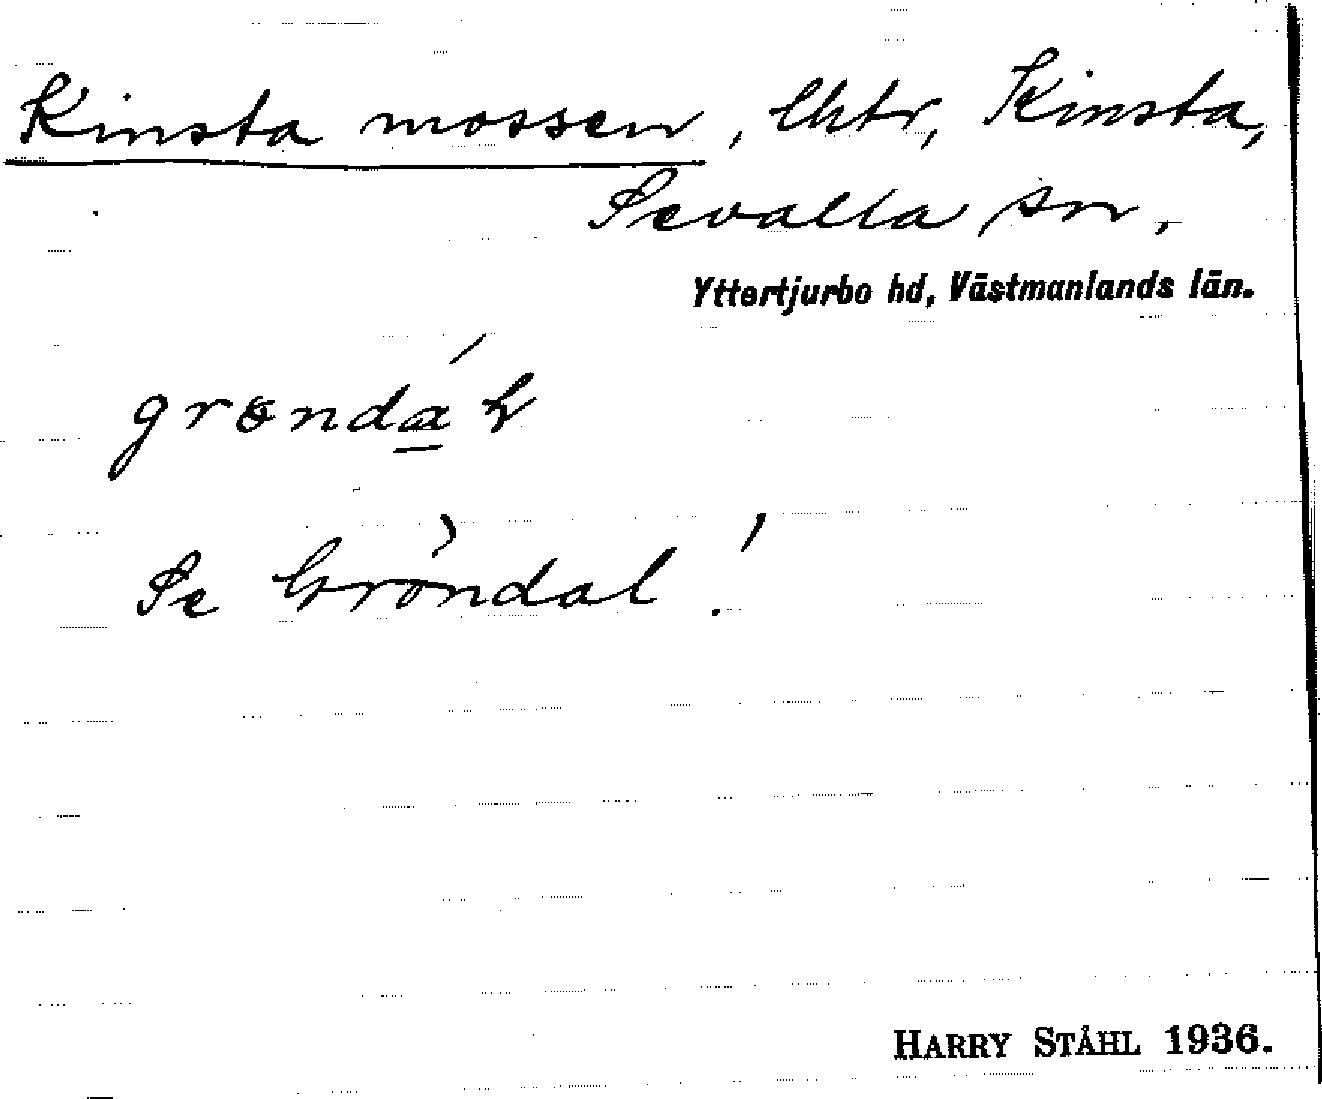 Kinsta mossen, lhtr, Kinsta,
Sevalla sn,
Yttertjurbo hd, Västmanlands län.
Se Gröndal!
HARRY STÅHL 1936.